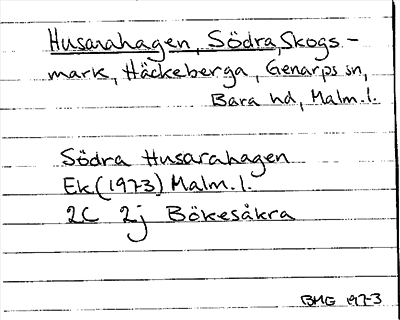 Husarahagen, Södra, Skogs-
mark, Häckeberga, Genarps sn,
Bara hd, Malm. l.
Södra Husarahagen
Ek (1973) Malm. l.
2C 2j Bökesåkra
BMG 1973